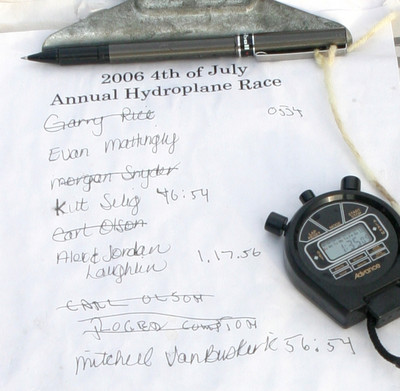 2006 4th of July
Annual Hydroplane Race
Garry Rice 0554
Evan Mattingly
morgan Snyder
Kitt Selig 46:54
Earl Olson
Alex & Jordan
Laughlin 1.17.56
EARL OLSON
ROGER COMPTON
Mitchell VanBuskirk 56:54
Advance